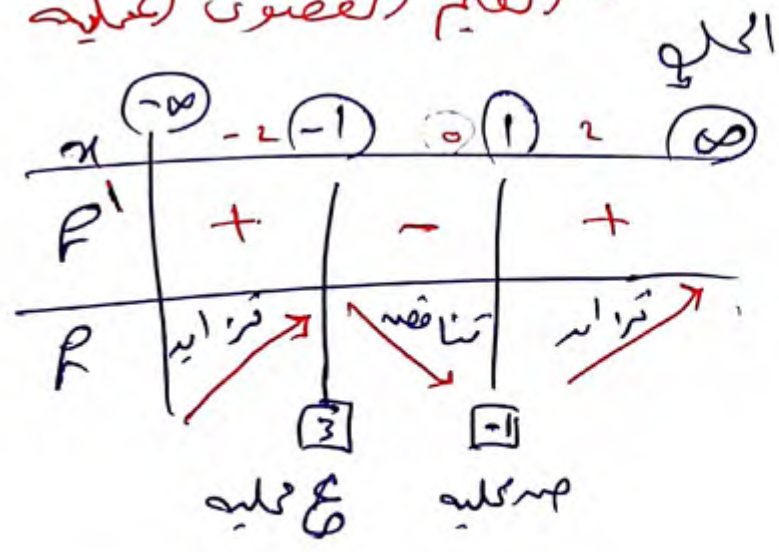 القيم القصوى المحلية
x -∞ -2 -1 0 1 2 ∞
f' + - +
f تزايد تناقص تزايد
3 -1
ع محلية ص محلية